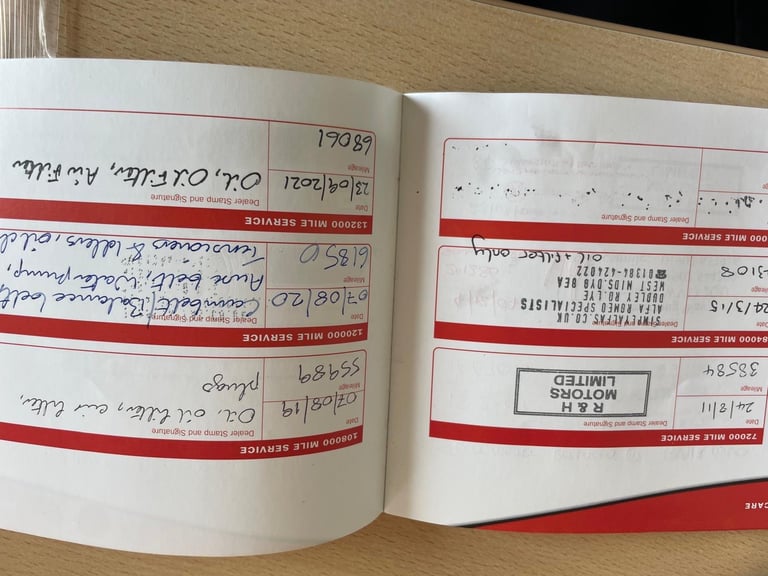 CARE
72000 MILE SERVICE
Date Dealer Stamp and Signature
24/8/11
Mileage
38584
R & H
MOTORS
LIMITED
84000 MILE SERVICE
Date Dealer Stamp and Signature
24/3/15
SIMPLYALFAS.CO.UK
ALFA ROMEO SPECIALISTS
DUDLEY RD LYE
WEST MIDS.DY9 8EA
☎01384-424022
oil + filter only
000 MILE SERVICE
Dealer Stamp and Signature
108000 MILE SERVICE
Date Dealer Stamp and Signature
07/08/19 Oil, oil filter, air filter,
Mileage
55989 plugs
120000 MILE SERVICE
Date Dealer Stamp and Signature
07/08/20 Cambelt, Balance belt,
Mileage Auxe belt, Water pump,
61850 Tensioners & Idlers,
132000 MILE SERVICE
Date Dealer Stamp and Signature
23/09/2021 Oil, Oil Filter, Air Filter
Mileage
68061